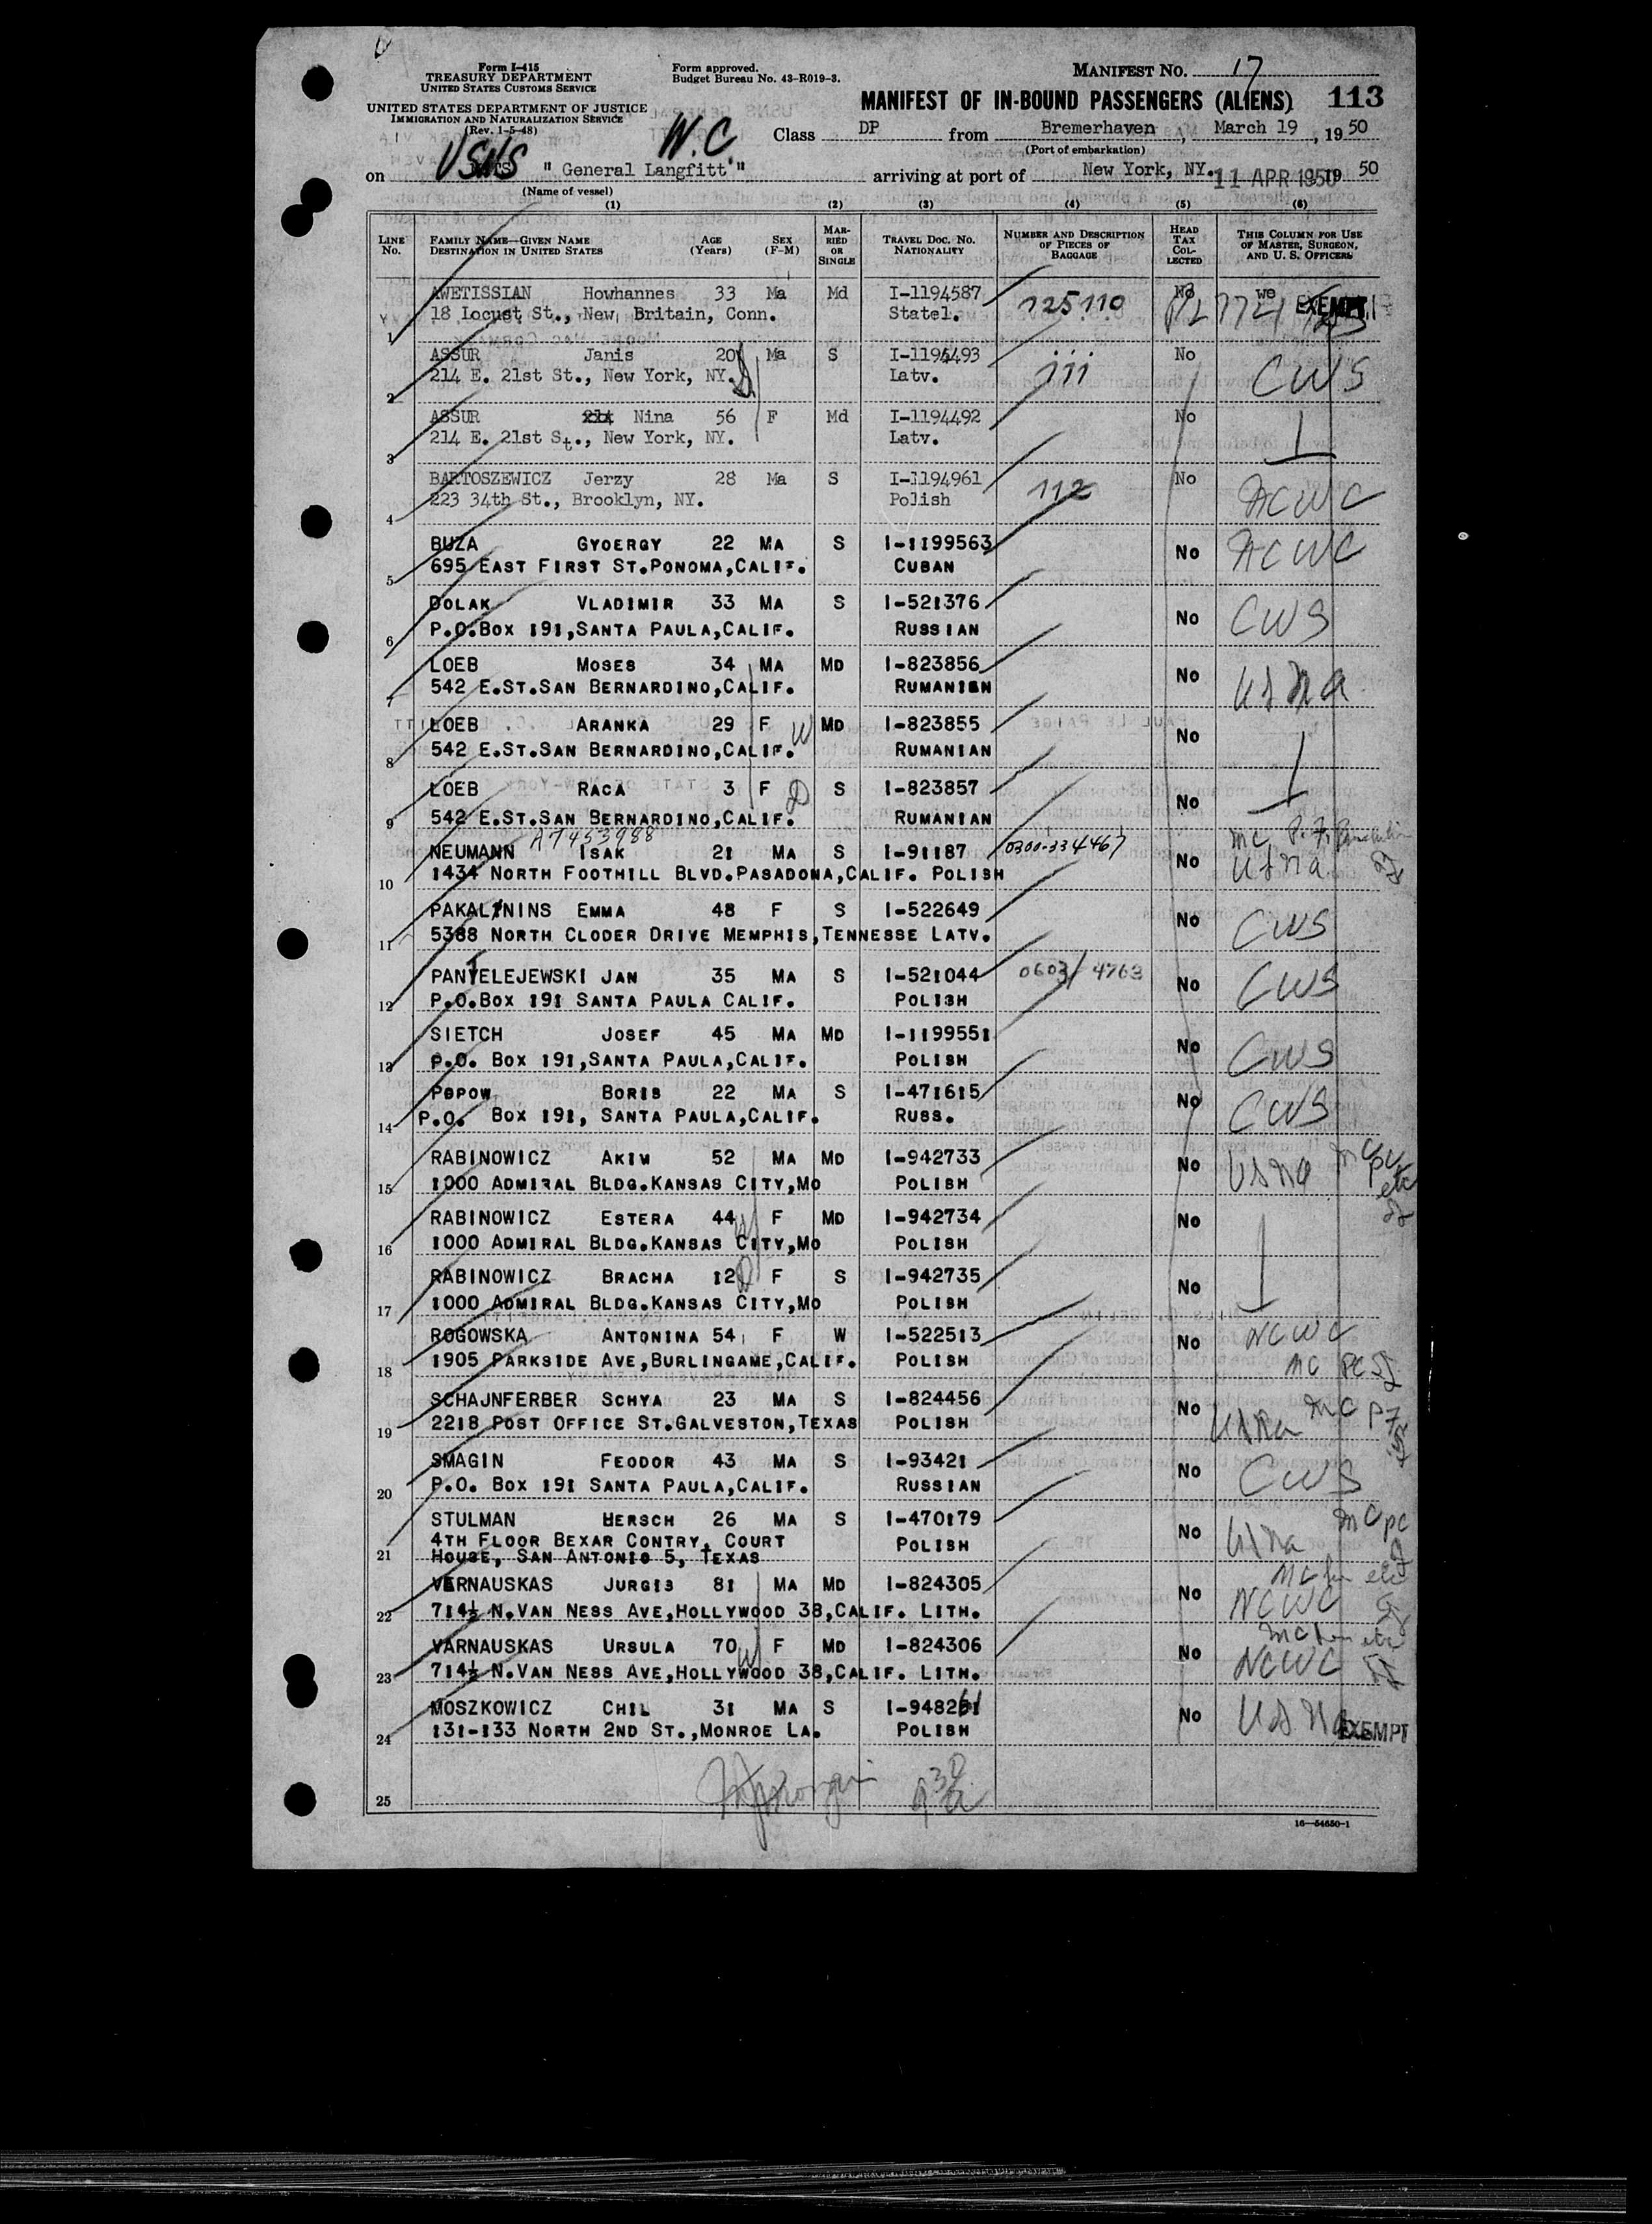 Form I-415
TREASURY DEPARTMENT
UNITED STATES CUSTOMS SERVICE
Form approved.
Budget Bureau No. 43-R019-3.
MANIFEST NO. 17
UNITED STATES DEPARTMENT OF JUSTICE
IMMIGRATION AND NATURALIZATION SERVICE
(Rev. 1-5-48)
MANIFEST OF IN-BOUND PASSENGERS (ALIENS) 113
Class DP from Bremerhaven, March 19, 1950
(Port of embarkation)
on USNS "General W.C. Langfitt" arriving at port of New York, NY. 11 APR 1950 19 50
(Name of vessel)
(1) (2) (3) (4) (5) (6)
LINE NO. FAMILY NAME—GIVEN NAME DESTINATION IN UNITED STATES AGE (Years) SEX (F-M) MARRIED OR SINGLE TRAVEL DOC. NO. NATIONALITY NUMBER AND DESCRIPTION OF PIECES OF BAGGAGE HEAD TAX COLLECTED THIS COLUMN FOR USE OF MASTER, SURGEON, AND U. S. OFFICERS
AWETISSIAN Howhannes 33 Ma Md I-1194587 125110 No we EXEMPT
1 18 Locust St., New Britain, Conn. Statel.
ASSUR Janis 20 Ma S I-1194493 No CWS
2 214 E. 21st St., New York, NY. Latv.
ASSUR Nina 56 F Md I-1194492 No
3 214 E. 21st St., New York, NY. Latv.
BARTOSZEWICZ Jerzy 28 Ma S I-1194961 112 No NCWC
4 223 34th St., Brooklyn, NY. Polish
BUZA GYOERGY 22 MA S I-1199563 No NCWC
5 695 EAST FIRST ST.PONOMA,CALIF. CUBAN
DOLAK VLADIMIR 33 MA S I-521376 No CWS
6 P.O.BOX 191,SANTA PAULA,CALIF. RUSSIAN
LOEB MOSES 34 MA MD I-823856 No USNA
7 542 E.ST.SAN BERNARDINO,CALIF. RUMANIEN
LOEB ARANKA 29 F W MD I-823855 No
8 542 E.ST.SAN BERNARDINO,CALIF. RUMANIAN
LOEB RACA 3 F D S I-823857 No
9 542 E.ST.SAN BERNARDINO,CALIF. RUMANIAN
A7453988
NEUMANN ISAK 21 MA S I-91187 0300-334467 No USNA
10 1434 NORTH FOOTHILL BLVD.PASADONA,CALIF. POLISH
PAKALNINS EMMA 48 F S I-522649 No CWS
11 5388 NORTH CLODER DRIVE MEMPHIS,TENNESSE LATV.
PANTELEJEWSKI JAN 35 MA S I-521044 0603/4763 No CWS
12 P.O.BOX 191 SANTA PAULA CALIF. POLISH
SIETCH JOSEF 45 MA MD I-1199551 No CWS
13 P.O. BOX 191,SANTA PAULA,CALIF. POLISH
POPOW BORIS 22 MA S I-471615 No CWS
14 P.O. BOX 191, SANTA PAULA,CALIF. RUSS.
RABINOWICZ AKIM 52 MA MD I-942733 No USNA
15 1000 ADMIRAL BLDG.KANSAS CITY,MO POLISH
RABINOWICZ ESTERA 44 W F MD I-942734 No
16 1000 ADMIRAL BLDG.KANSAS CITY,MO POLISH
RABINOWICZ BRACHA 12 D F S I-942735 No
17 1000 ADMIRAL BLDG.KANSAS CITY,MO POLISH
ROGOWSKA ANTONINA 54 F W I-522513 No NCWC
18 1905 PARKSIDE AVE,BURLINGAME,CALIF. POLISH
SCHAJNFERBER SCHYA 23 MA S I-824456 No USNA
19 2218 POST OFFICE ST.GALVESTON,TEXAS POLISH
SMAGIN FEODOR 43 MA S I-93421 No CWS
20 P.O. BOX 191 SANTA PAULA,CALIF. RUSSIAN
STULMAN HERSCH 26 MA S I-470179 No USNA
4TH FLOOR BEXAR CONTRY. COURT POLISH
21 HOUSE, SAN ANTONIO 5, TEXAS
VERNAUSKAS JURGIS 81 MA MD I-824305 No NCWC
22 714½ N.VAN NESS AVE,HOLLYWOOD 38,CALIF. LITH.
VARNAUSKAS URSULA 70 W F MD I-824306 No NCWC
23 714½ N.VAN NESS AVE,HOLLYWOOD 38,CALIF. LITH.
MOSZKOWICZ CHIL 31 MA S I-948261 No USNA EXEMPT
24 131-133 NORTH 2ND ST.,MONROE LA. POLISH
25
16—54650-1